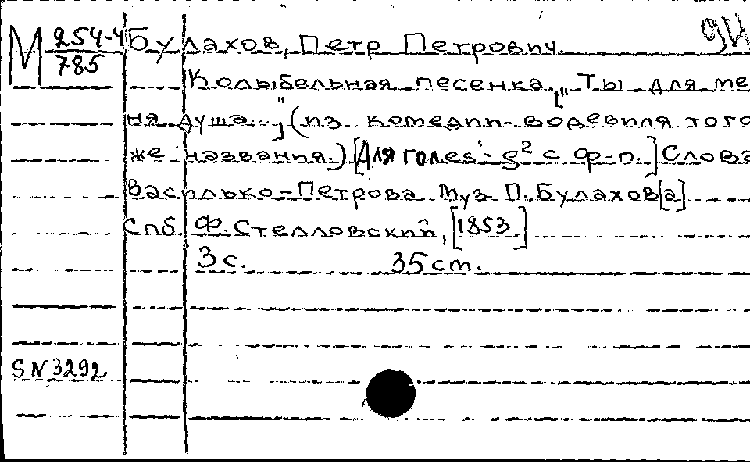 М 254-4 Булахов, Петр Петрович
785
Колыбельная песенка „Ты для ме
ня душа..." (из комедии-водевиля того
же названия.) [Для голоса с ф-п.] Слова
Василько-Петрова Муз П. Булахов[а]
Спб Ф. Стелловский, [1853]
3 с. 35 cm.
SN3292